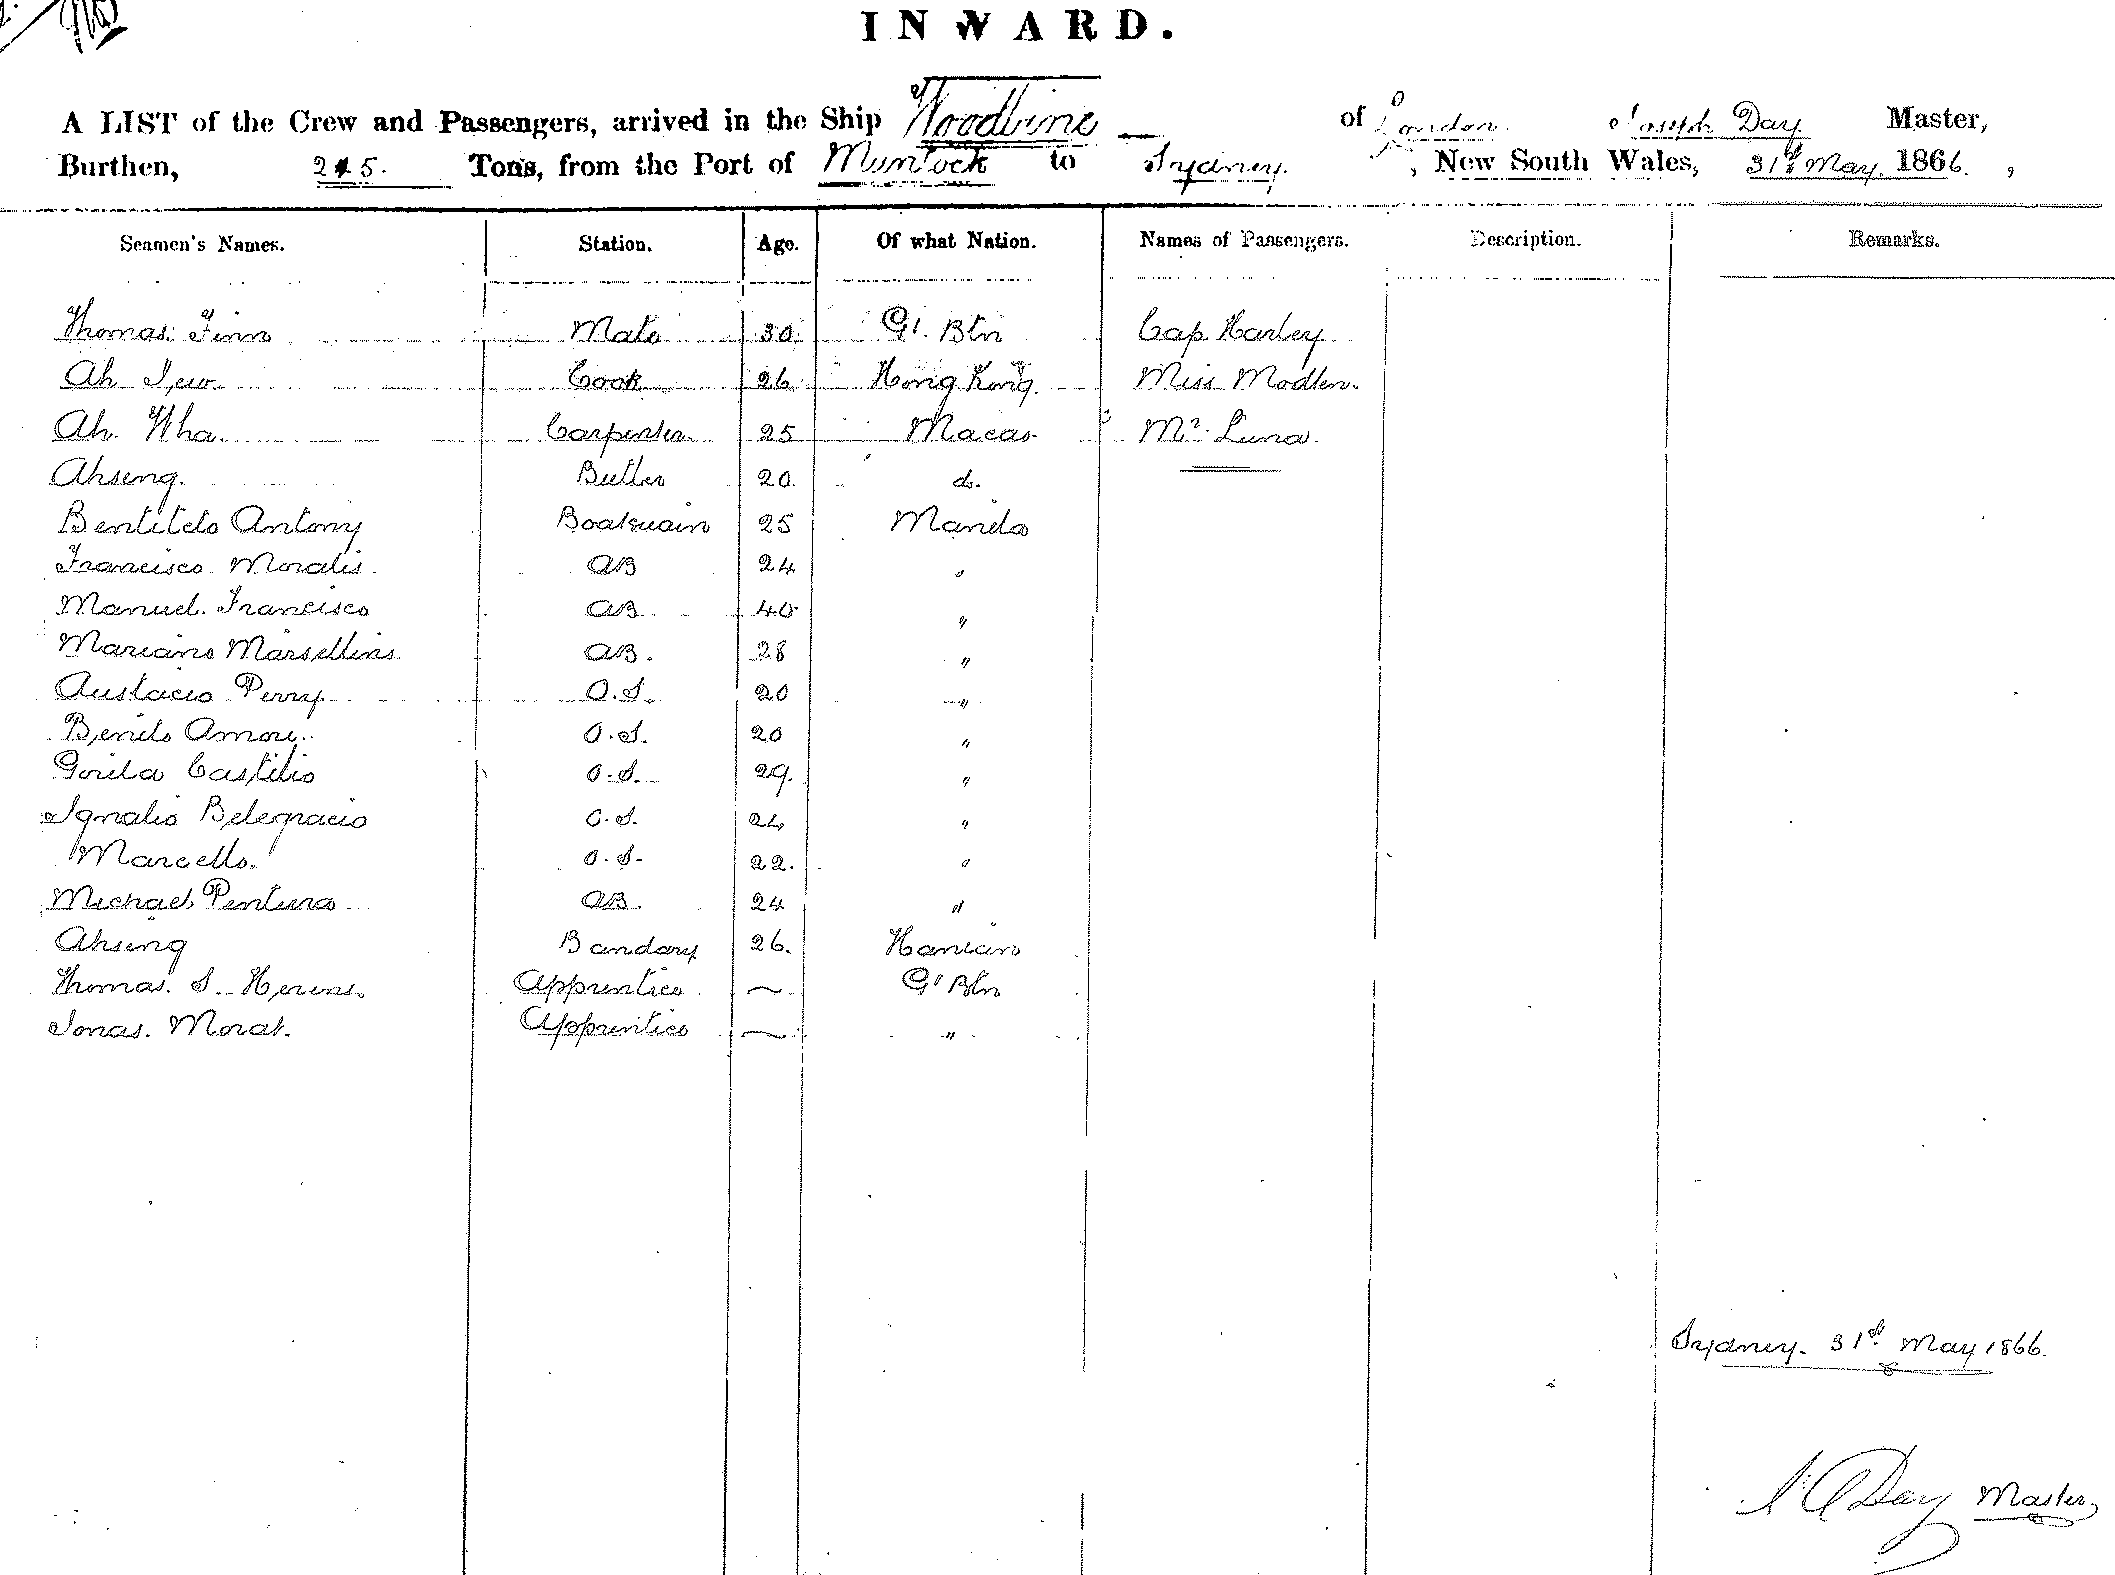 INWARD.
A LIST of the Crew and Passengers, arrived in the Ship Woodbine of London Joseph Day Master,
Burthen, 245. Tons, from the Port of Muntock to Sydney, New South Wales, 31st May 1866.,
Seamen's Names. Station. Age. Of what Nation. Names of Passengers. Description. Remarks.
Thomas Finn Mate 30 Gt. Btn Cap Harley
Ah Cook 26 Hong Kong Miss Modlen.
Ah. Wha. Carpenter 25 Macao Mr. Luna
Ahseng. Butler 20 do.
Bentileto Antony Boatswain 25 Manila
Francisco Moralis AB 24 "
Manuel. Francisco AB 40 "
Mariano Marsellins AB. 28 "
Austacio Perry O.S. 20 "
Benito Amore. O.S. 20 "
Castilio O.S. 29. "
Ignatio Belegnacio O.S. 24 "
Marcello. O.S. 22. "
Michael Pentura AB. 24 "
Ahseng Bandary 26. Hanian
Thomas. S. Apprentice ~ Gt Btn
Jonas. Morat. Apprentice ~ "
Sydney. 31st. May 1866.
Day Master